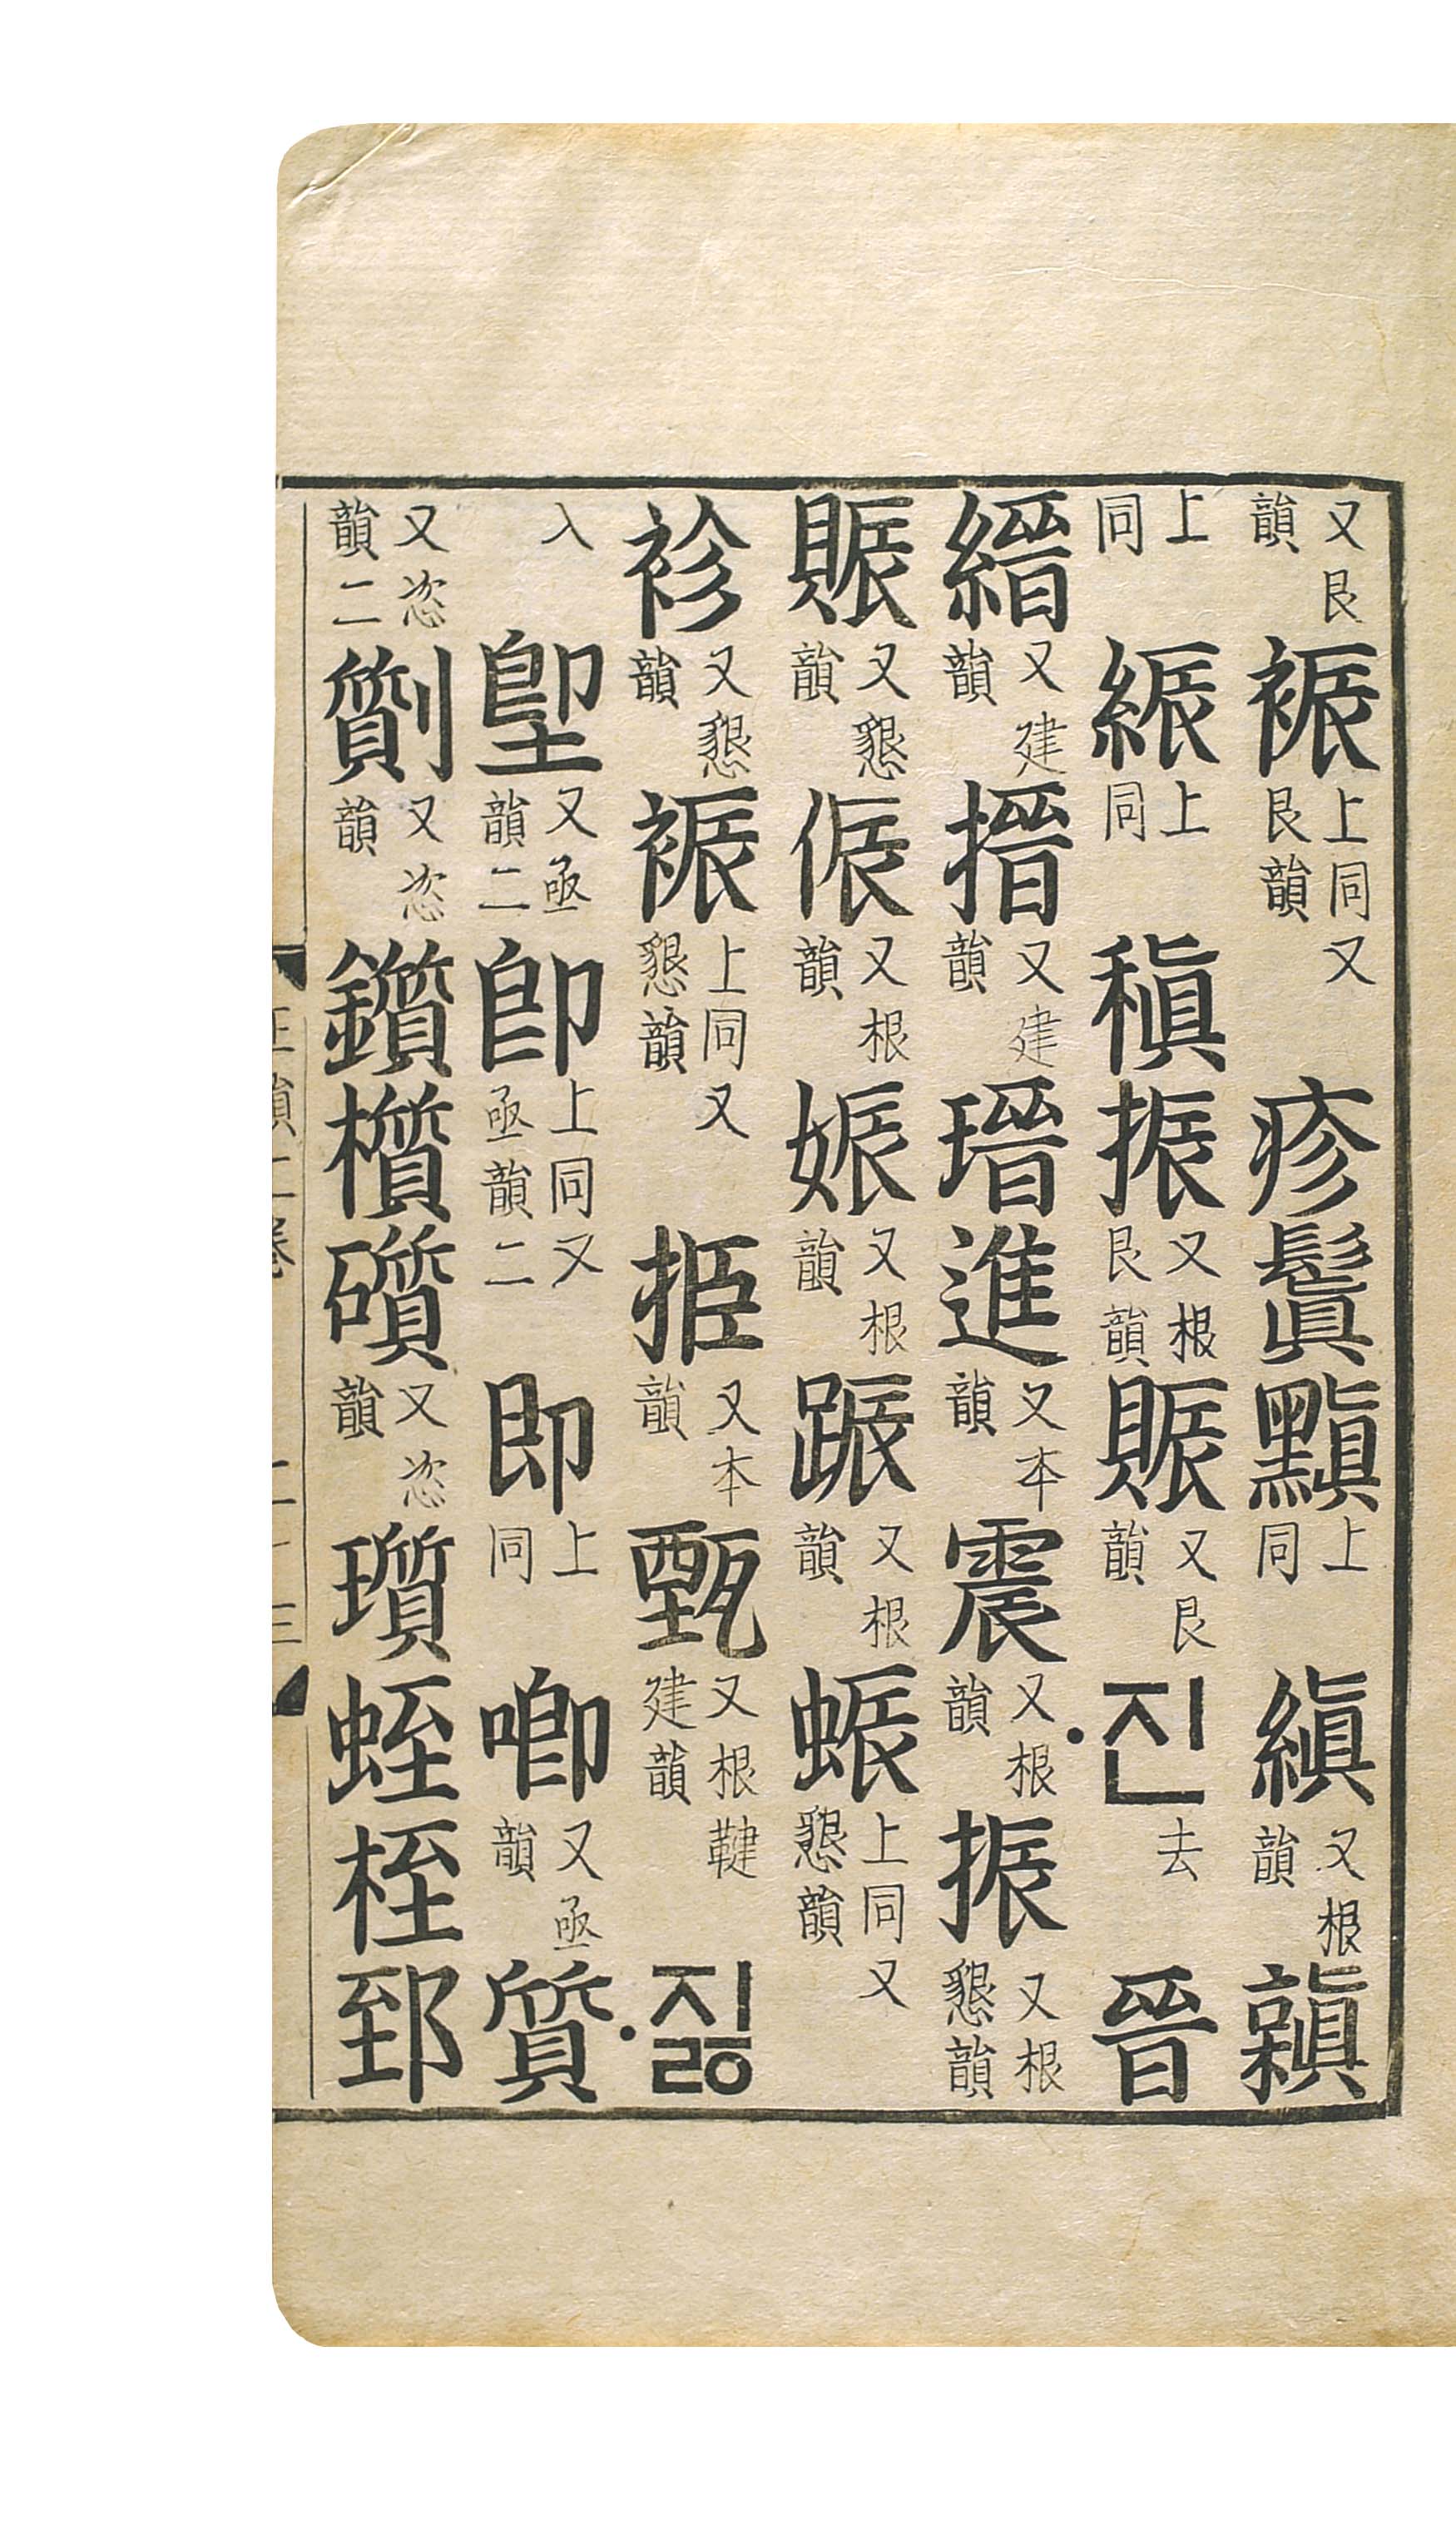 又艮韻裖上同又艮韻疹鬒黰上同縝又根韻䫬
上同紾上同稹振又根艮韻賑又艮韻진去晉
縉又建韻搢又建韻瑨進又本韻震又根韻振又根懇韻
賑又懇韻侲又根韻娠又根韻踬又根韻蜄上同又懇韻
袗又懇韻裖上同又懇韻挋又本韻甄又根鞬建韻·짏
入堲又亟韻二卽上同又亟韻二即上同喞又亟韻質
又恣韻二劕又恣韻鑕櫍礩又恣韻瓆蛭桎郅